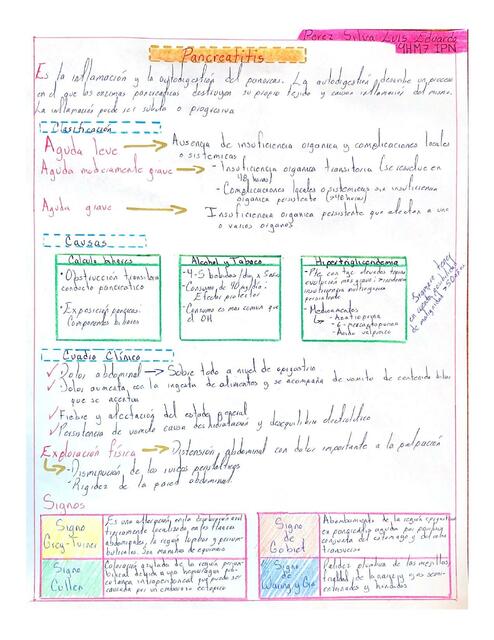 Perez Silva Luis Eduardo
9HM7 IPN
Pancreatitis
Es la inflamación y la autodigestión del pancreas. La autodigestión describe un proceso
en el que las enzimas pancreaticas destruyen su propio tejido y causan inflamación del mismo.
La inflamación puede ser subita o progresiva
Clasificación
Aguda leve → Ausencia de insuficiencia organica y complicaciones locales
o sistemicas
Aguda moderamente grave → - Insuficiencia organica transitoria (se resuelve en
48 horas)
- Complicaciones locales o sistemicas sin insuficiencia
organica persistente (>48 horas)
Aguda grave → Insuficiencia organica persistente que afectan a uno
o varios organos
Causas
Calculo biliares
• Obstrucción transitoria
conducto pancreatico
• Exposición
Componentes biliares
Alcohol y Tabaco
- 4-5 bebidas/día x 5años
- Consumo de 40
Efector
- Consumo es mas comun que
el OH
Hipertrigliceridemia
- Ptc con tgc elevados
evolución más grave
insuficiencia multiorganica
persistente
- Medicamentos
↳ - Azatioprina
- 6-mercaptopurina
- Ácido valproico
Siempre tener
en cuenta
de malignidad >50años
Cuadro Clínico
✓ Dolor abdominal → Sobre todo a nivel de epigastrio
✓ Dolor aumenta con la ingesta de alimentos y se acompaña de vomito de contenido biliar
que se acentua
✓ Fiebre y afectación del estado general
✓ Persistencia de vomito causa deshidratación y desequilibrio electrolitico
Exploración física → Distensión abdominal con dolor importante a la palpación
↳ - Disminución de los ruidos peristalticos
- Rigidez de la pared abdominal.
Signos
Signo
Grey-Turner
Es una alteración en la
tipicamente localizada en los flancos
abdominales, la región lumbar y
Son manchas de equimosis
Signo
de
Gobiet
Abombamiento de la región epigastrica
en pancreatitis aguda por
conjunta del estomago y del colon
transverso
Signo
Cullen
Coloración azulada de la región
umbilical debida a una hemorragia
intraperitoneal que puede ser
causada por un embarazo ectopico
Signo
de
Palidez plomiza de las mejillas,
frialdad de la nariz y ojos semi-
entornados y hundidos